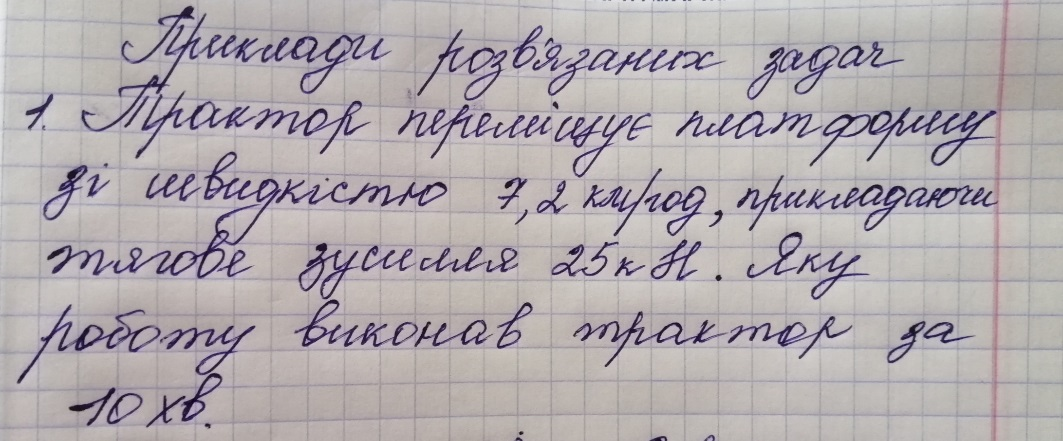 Приклади розв'язаних задач
1. Трактор переміщує платформу
зі швидкістю 7,2 км/год, прикладаючи
тягове зусилля 25 кН. Яку
роботу виконав трактор за
10 хв.